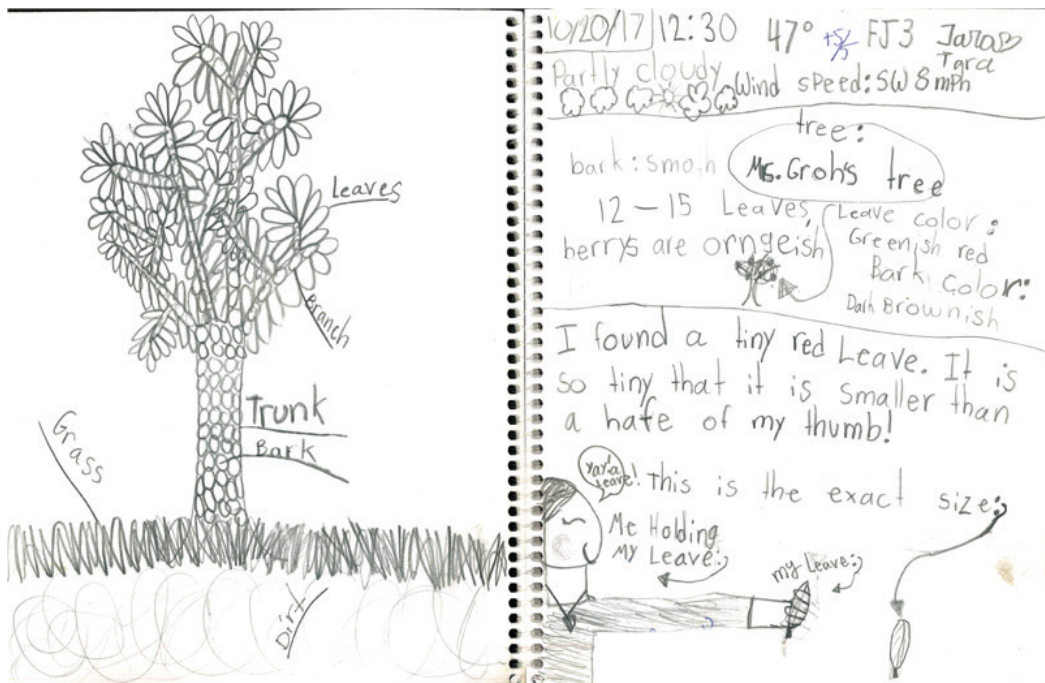 Leaves
Branch
Trunk
Bark
Grass
Dirt
10/20/17 12:30 47° FJ3
Tara
Partly cloudy Wind speed: SW 8 mph
tree:
bark: smoth Ms. Groh's tree
12 – 15 Leaves,
berrys are orngeish
Leave color:
Greenish red
Bark Color:
Dark Brownish
I found a tiny red Leave. It is
so tiny that it is smaller than
a hafe of my thumb!
Yay! a
Leave!
This is the exact size:
Me Holding
My Leave:
my Leave: